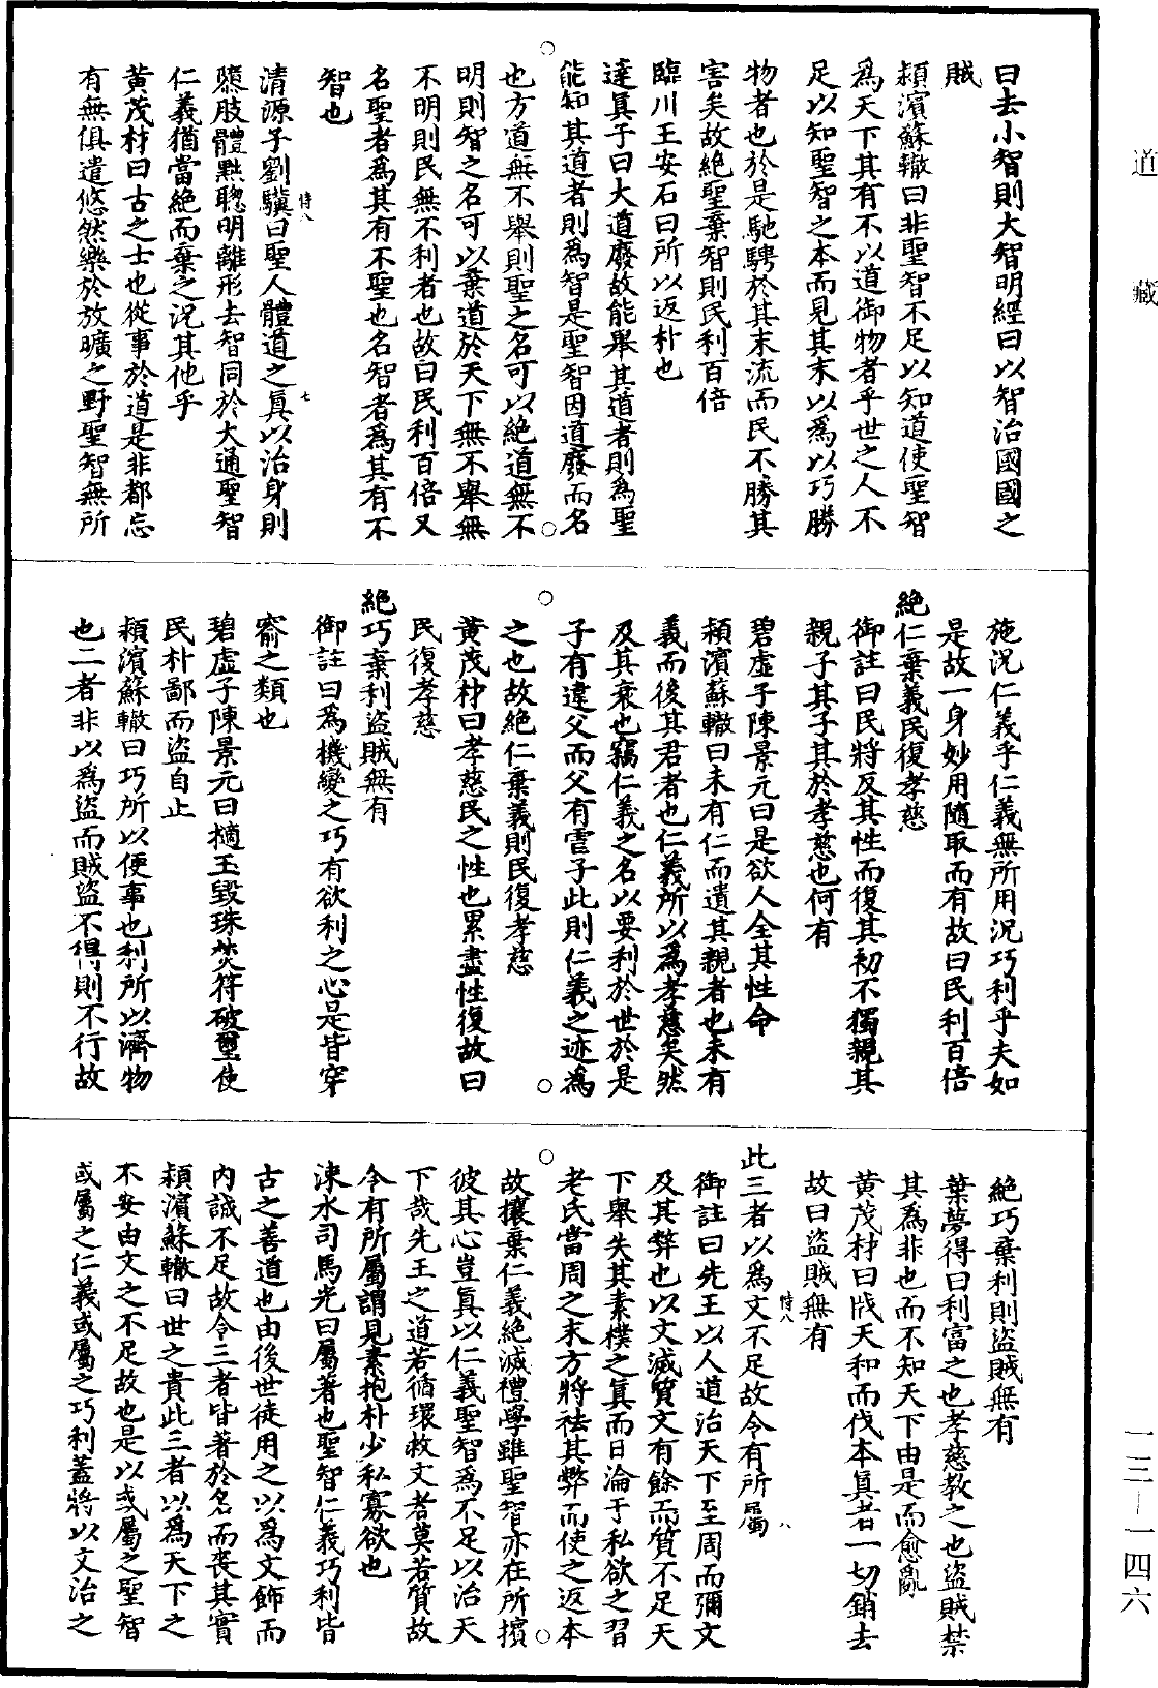 道藏
曰去小智則大智明經曰以智治國國之
賊
潁濱蘇轍曰非聖智不足以知道使聖智
為天下其有不以道御物者乎世之人不
足以知聖智之本而見其末以為以巧勝
物者也於是馳騁於其末流而民不勝其
害矣故絕聖棄智則民利百倍
臨川王安石曰所以返朴也
達真子曰大道廢故能舉其道者則為聖
能知其道者則為智是聖智因道廢而名
也方道無不舉則聖之名可以絕道無不
明則智之名可以棄道於天下無不舉無
不明則民無不利者也故曰民利百倍又
名聖者為其有不聖也名智者為其有不
智也
清源子劉驥曰聖人體道之真以治身則
隳肢體黜聰明離形去智同於大通聖智
仁義猶當絕而棄之況其他乎
黃茂材曰古之士也從事於道是非都忘
有無俱遣悠然樂於放曠之野聖智無所
恃八 七
施況仁義乎仁義無所用況巧利乎夫如
是故一身妙用隨取而有故曰民利百倍
絕仁棄義民復孝慈
御註曰民將反其性而復其初不獨親其
親子其子其於孝慈也何有
碧虛子陳景元曰是欲人全其性命
潁濱蘇轍曰未有仁而遺其親者也未有
義而後其君者也仁義所以為孝慈矣然
及其衰也竊仁義之名以要利於世於是
子有違父而父有虐子此則仁義之迹為
之也故絕仁棄義則民復孝慈
黃茂材曰孝慈民之性也累盡性復故曰
民復孝慈
絕巧棄利盜賊無有
御註曰為機變之巧有欲利之心是皆穿
窬之類也
碧虛子陳景元曰擿玉毀珠焚符破璽使
民朴鄙而盜自止
潁濱蘇轍曰巧所以便事也利所以濟物
也二者非以為盜而賊盜不得則不行故
絕巧棄利則盜賊無有
葉夢得曰利富之也孝慈教之也盜賊禁
其為非也而不知天下由是而愈亂
黃茂材曰戕天和而伐本真者一切銷去
故曰盜賊無有
此三者以為文不足故令有所屬
恃八 八
御註曰先王以人道治天下至周而彌文
及其弊也以文滅質文有餘而質不足天
下舉失其素樸之真而日淪于私欲之習
老氏當周之末方將祛其弊而使之返本
故攘棄仁義絕滅禮學雖聖智亦在所擯
彼其心豈真以仁義聖智為不足以治天
下哉先王之道若循環救文者莫若質故
令有所屬謂見素抱朴少私寡欲也
涑水司馬光曰屬著也聖智仁義巧利皆
古之善道也由後世徒用之以為文飾而
內誠不足故令三者皆著於名而喪其實
潁濱蘇轍曰世之貴此三者以為天下之
不安由文之不足故也是以或屬之聖智
或屬之仁義或屬之巧利蓋將以文治之
一三—一四六